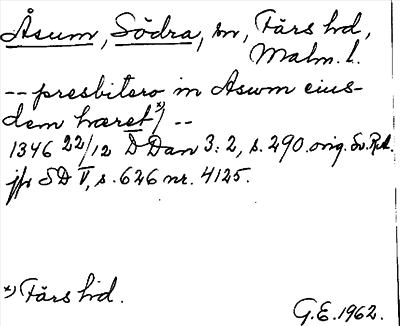 Åsum, Södra, sn, Färs hd,
Malm. l.
-- presbitero in Aswm eius-
dem hæret x) --
1346 22/12 DDan 3:2, s. 290. orig. Sv. RA.
jfr SD V, s. 626 nr. 4125.
x) Färs hd.
G.E. 1962.